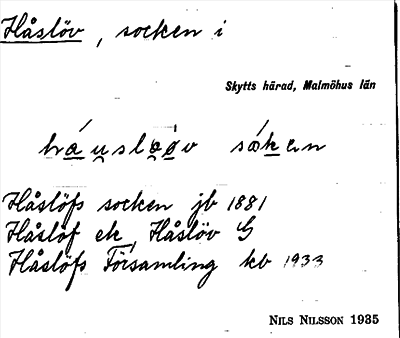 Håslöv, socken i
Skytts härad, Malmöhus län
håusløøv søken
Håslöfs socken jb 1881
Håslöf ek, Håslöv G
Håslöfs Församling kb 1933
NILS NILSSON 1935